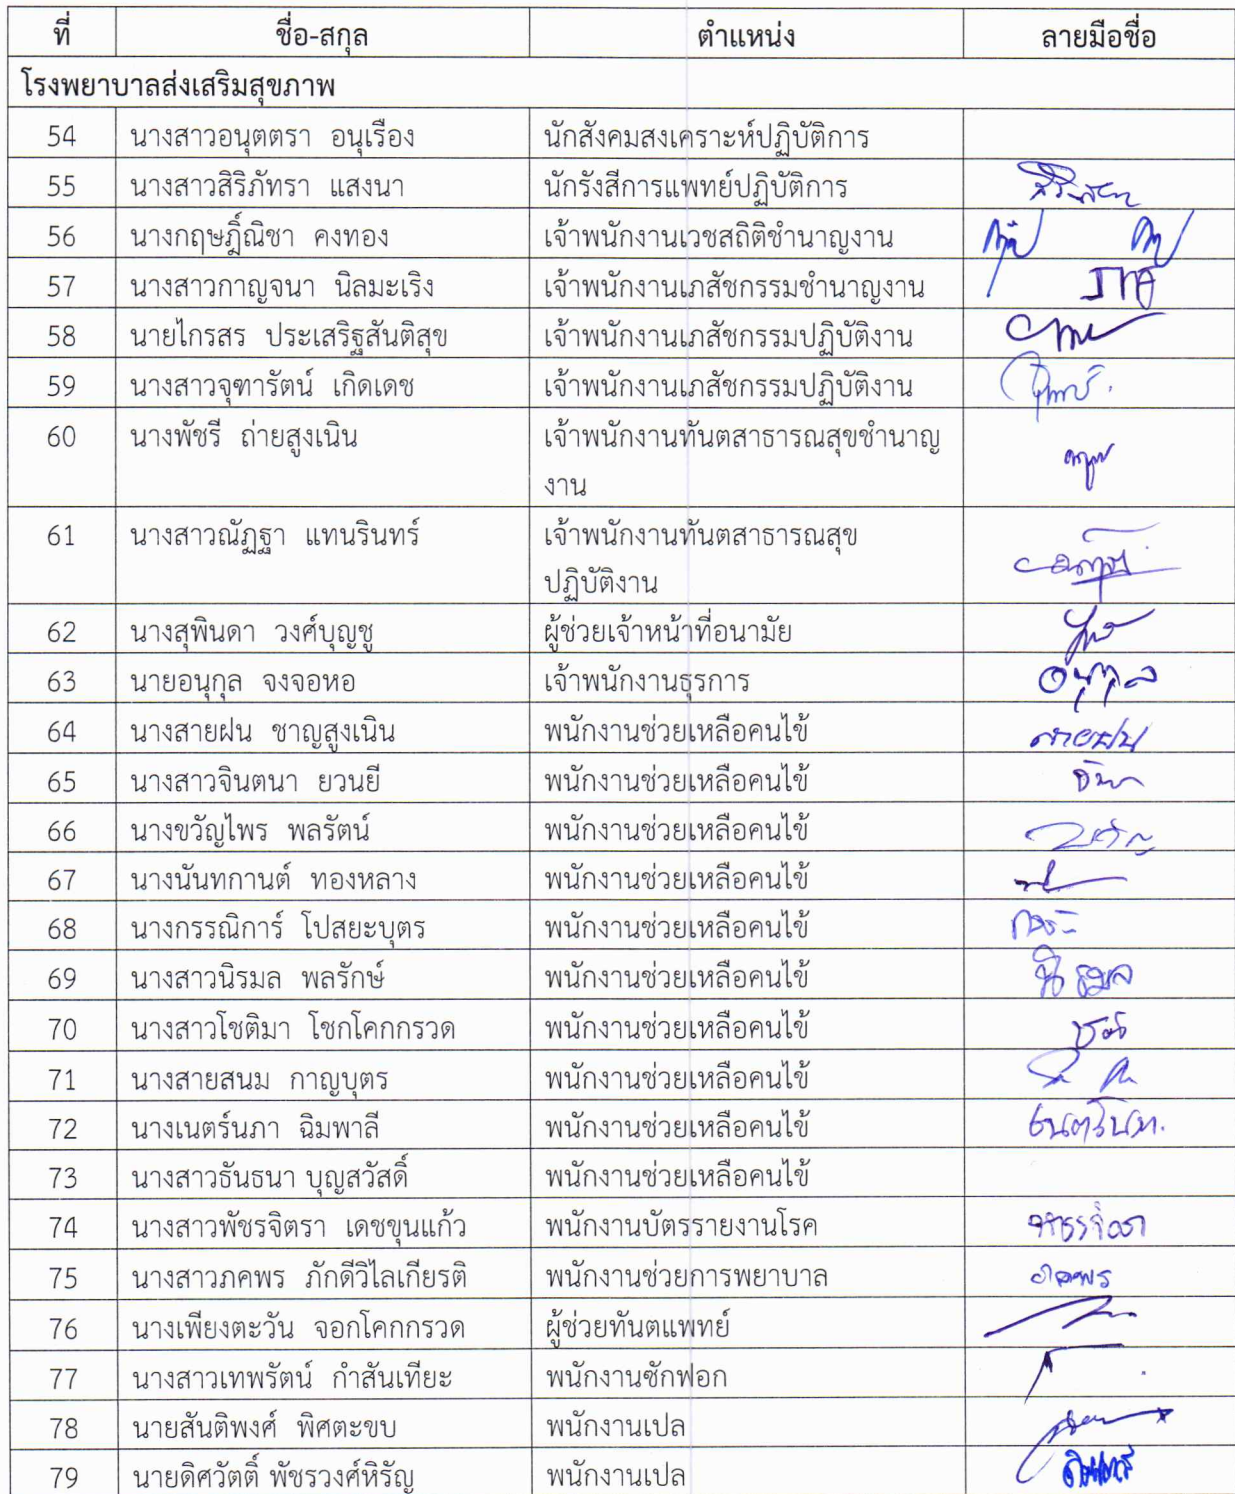 ที่ ชื่อ-สกุล ตำแหน่ง ลายมือชื่อ
โรงพยาบาลส่งเสริมสุขภาพ
54 นางสาวอนุตตรา อนุเรือง นักสังคมสงเคราะห์ปฏิบัติการ
55 นางสาวสิริภัทรา แสงนา นักรังสีการแพทย์ปฏิบัติการ
56 นางกฤษฎิ์ณิชา คงทอง เจ้าพนักงานเวชสถิติชำนาญงาน
57 นางสาวกาญจนา นิลมะเริง เจ้าพนักงานเภสัชกรรมชำนาญงาน
58 นายไกรสร ประเสริฐสันติสุข เจ้าพนักงานเภสัชกรรมปฏิบัติงาน
59 นางสาวจุฑารัตน์ เกิดเดช เจ้าพนักงานเภสัชกรรมปฏิบัติงาน
60 นางพัชรี ถ่ายสูงเนิน เจ้าพนักงานทันตสาธารณสุขชำนาญ
งาน
61 นางสาวณัฏฐา แทนรินทร์ เจ้าพนักงานทันตสาธารณสุข
ปฏิบัติงาน
62 นางสุพินดา วงศ์บุญชู ผู้ช่วยเจ้าหน้าที่อนามัย
63 นายอนุกุล จงจอหอ เจ้าพนักงานธุรการ อนุกุล
64 นางสายฝน ชาญสูงเนิน พนักงานช่วยเหลือคนไข้ สายฝน
65 นางสาวจินตนา ยวนยี พนักงานช่วยเหลือคนไข้
66 นางขวัญไพร พลรัตน์ พนักงานช่วยเหลือคนไข้
67 นางนันทกานต์ ทองหลาง พนักงานช่วยเหลือคนไข้
68 นางกรรณิการ์ โปสยะบุตร พนักงานช่วยเหลือคนไข้
69 นางสาวนิรมล พลรักษ์ พนักงานช่วยเหลือคนไข้ นิรมล
70 นางสาวโชติมา โชกโคกกรวด พนักงานช่วยเหลือคนไข้
71 นางสายสนม กาญบุตร พนักงานช่วยเหลือคนไข้
72 นางเนตร์นภา ฉิมพาลี พนักงานช่วยเหลือคนไข้
73 นางสาวธันธนา บุญสวัสดิ์ พนักงานช่วยเหลือคนไข้
74 นางสาวพัชรจิตรา เดชขุนแก้ว พนักงานบัตรรายงานโรค
75 นางสาวภคพร ภักดีวิไลเกียรติ พนักงานช่วยการพยาบาล ภคพร
76 นางเพียงตะวัน จอกโคกกรวด ผู้ช่วยทันตแพทย์
77 นางสาวเทพรัตน์ กำสันเทียะ พนักงานซักฟอก
78 นายสันติพงศ์ พิศตะขบ พนักงานเปล
79 นายดิศวัตติ์ พัชรวงศ์หิรัญ พนักงานเปล